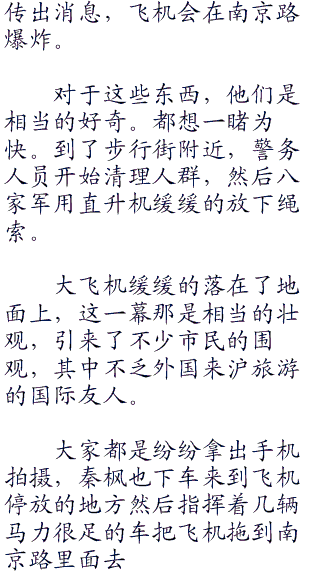 传出消息，飞机会在南京路
爆炸。
对于这些东西，他们是
相当的好奇。都想一睹为
快。到了步行街附近，警务
人员开始清理人群，然后八
家军用直升机缓缓的放下绳
索。
大飞机缓缓的落在了地
面上，这一幕那是相当的壮
观，引来了不少市民的围
观，其中不乏外国来沪旅游
的国际友人。
大家都是纷纷拿出手机
拍摄，秦枫也下车来到飞机
停放的地方然后指挥着几辆
马力很足的车把飞机拖到南
京路里面去